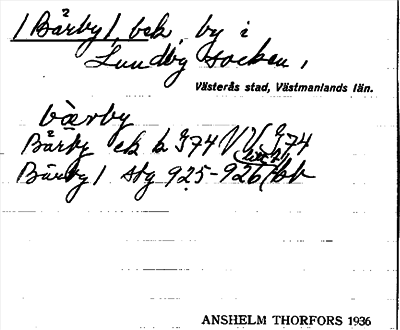 /Bärby/, bek, by i
Lundby socken,
Västerås stad, Västmanlands län.
bärby
Bärby ek b 374 VV 374
Bärby / stg 925-926
ANSHELM THORFORS 1936